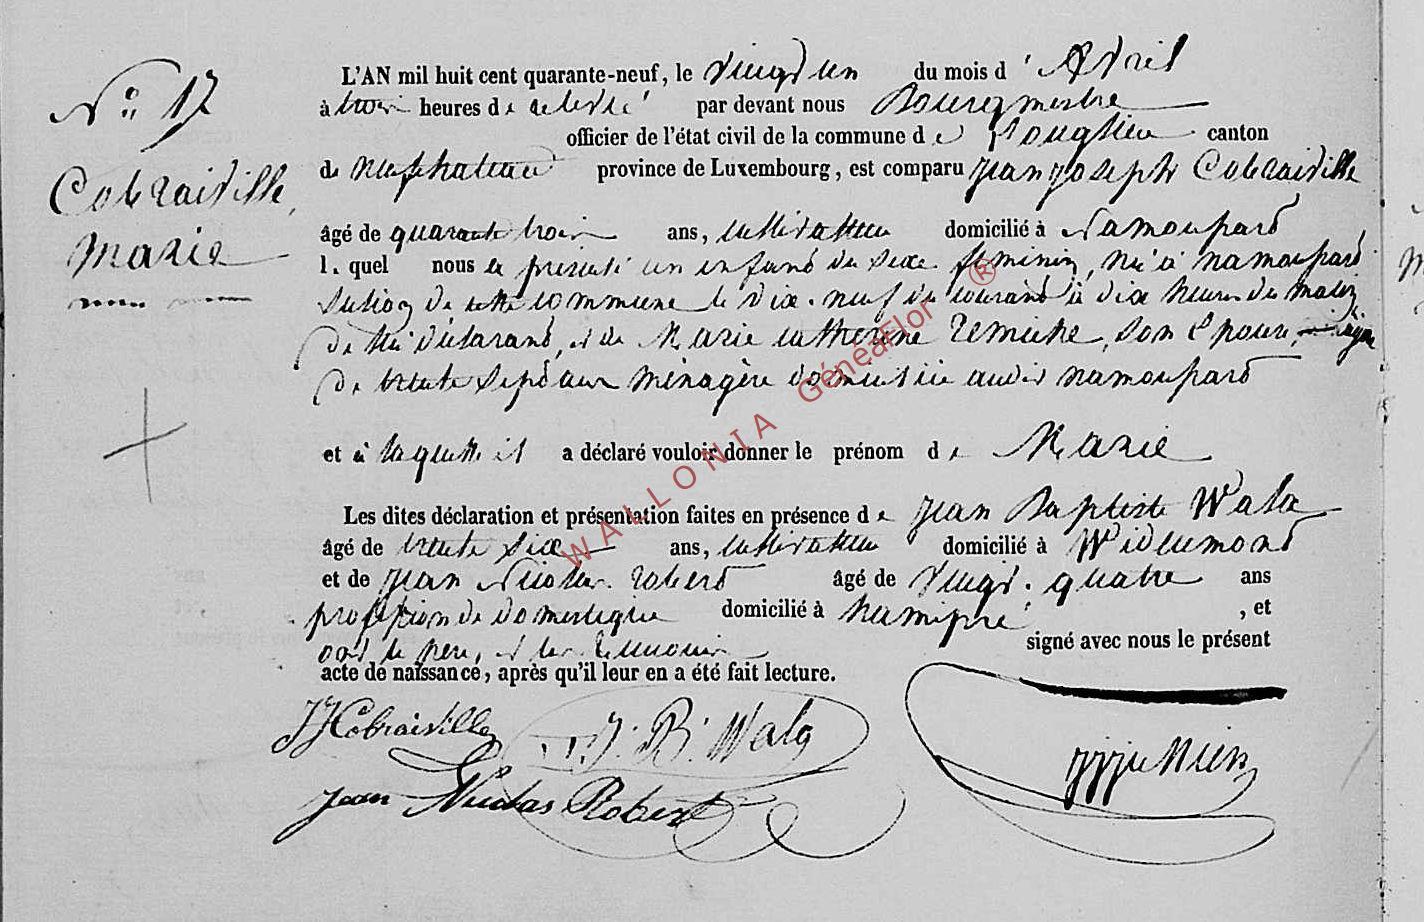 N° 17
Cobraiville,
Marie
L'AN mil huit cent quarante-neuf, le vingt un du mois d'Avril
à trois heures de relevé par devant nous Bourgmestre
officier de l'état civil de la commune de Longlier canton
de Neufchateau province de Luxembourg, est comparu Jean Joseph Cobraiville
âgé de quarante trois ans, cultivateur domicilié à Namoupard
lequel nous a présenté un enfant du sexe feminin, né à Namoupard
section de cette commune le dix-neuf du courant à dix heures du matin
de lui déclarant, et de Marie Catherine Remiche, son épouse, agée
de trente sept ans ménagère domiciliée audit Namoupard
et à laquelle il a déclaré vouloir donner le prénom de Marie
Les dites déclaration et présentation faites en présence de Jean Baptiste Wala
âgé de trente six ans, cultivateur domicilié à Wideumont
et de Jean Nicolas Robert âgé de vingt-quatre ans
profession de domestique domicilié à Namipré, et
ont le père, et les témoins signé avec nous le présent
acte de naissance, après qu'il leur en a été fait lecture.
JJ Cobraiville J. B. Wala
Jean Nicolas Robert
WALLONIA GénéaFlor ®